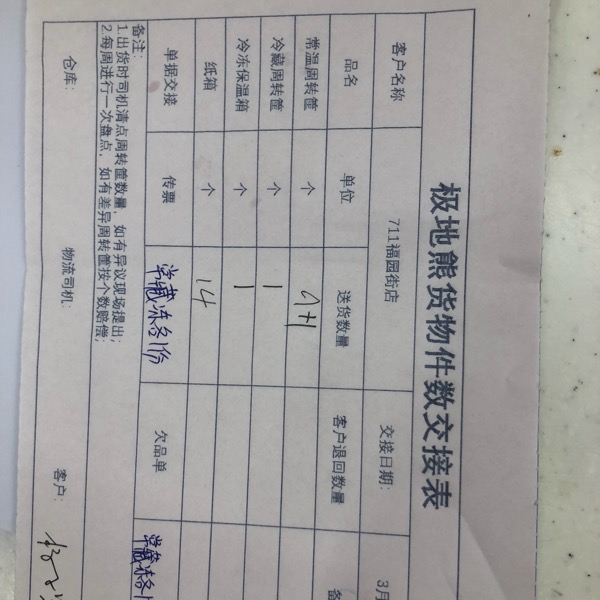 极地熊货物件数交接表
客户名称 711福园街店 交接日期: 3月
品名 单位 送货数量 客户退回数量 备
常温周转筐 个 9+1
冷藏周转筐 个 1
冷冻保温箱 个 1
纸箱 个 14
单据交接 传票 常藏冻各1份 欠品单 常藏冻各1
备注:
1.出货时司机清点周转筐数量，如有异议现场提出;
2.每周进行一次盘点，如有差异周转筐按个数赔偿;
仓库: 物流司机: 客户: